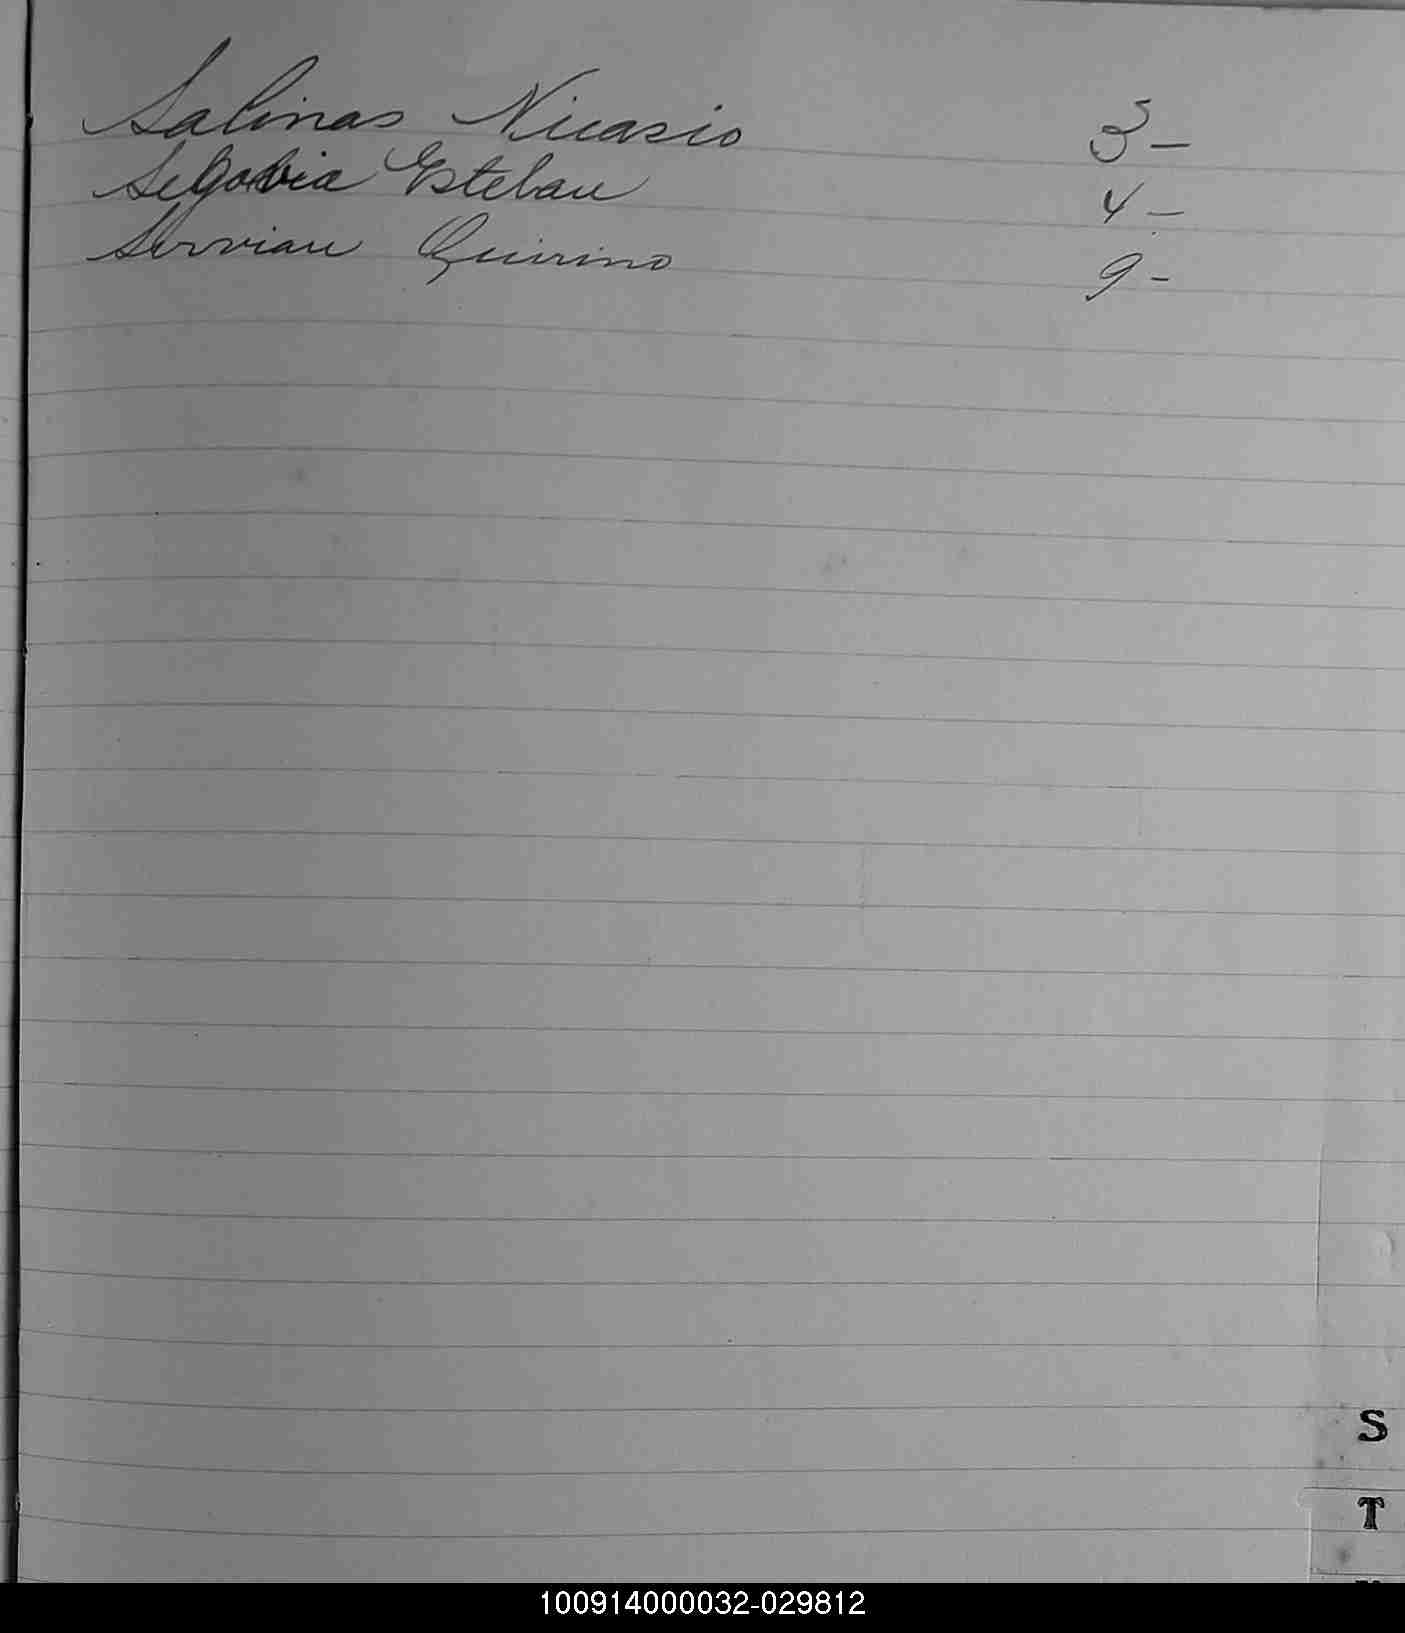 Salinas Nicasio 3 –
Segovia Esteban 4 –
Servian Quirino 9 –
S
T
100914000032-029812